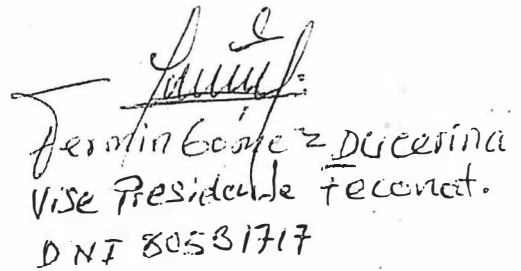 Fermin Gómez Ducerina
Vise Presidente Feconat.
DNI 80531717